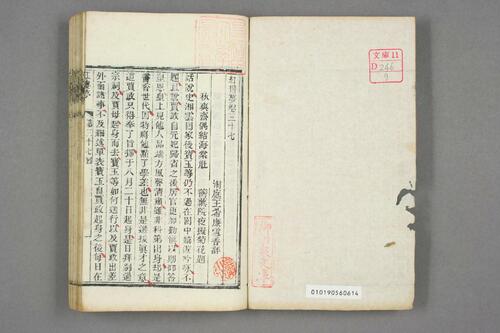 紅樓夢卷三十七
洞庭王希廉雪香評
秋爽齋偶結海棠社
蘅蕪院夜擬菊花題
話說史湘雲回家後寶玉等仍不過在園中嬉遊吟咏不
題且說賈政自元妃歸省之後居官更加勤慎以期仰答
皇恩皇上見他人品端方風聲清肅雖非科第出身却是
書香世代因特將他點了學差也無非是選拔真才之意
這賈政只得奉了旨擇于八月二十日起身是日拜別過
宗祠及賈母起身而去寶玉等如何送行以及賈政出差
外面諸事不及細述單表寶玉自賈政起身之後每日在
紅樓夢
第三十七回
文庫11
D266
9
010190560614